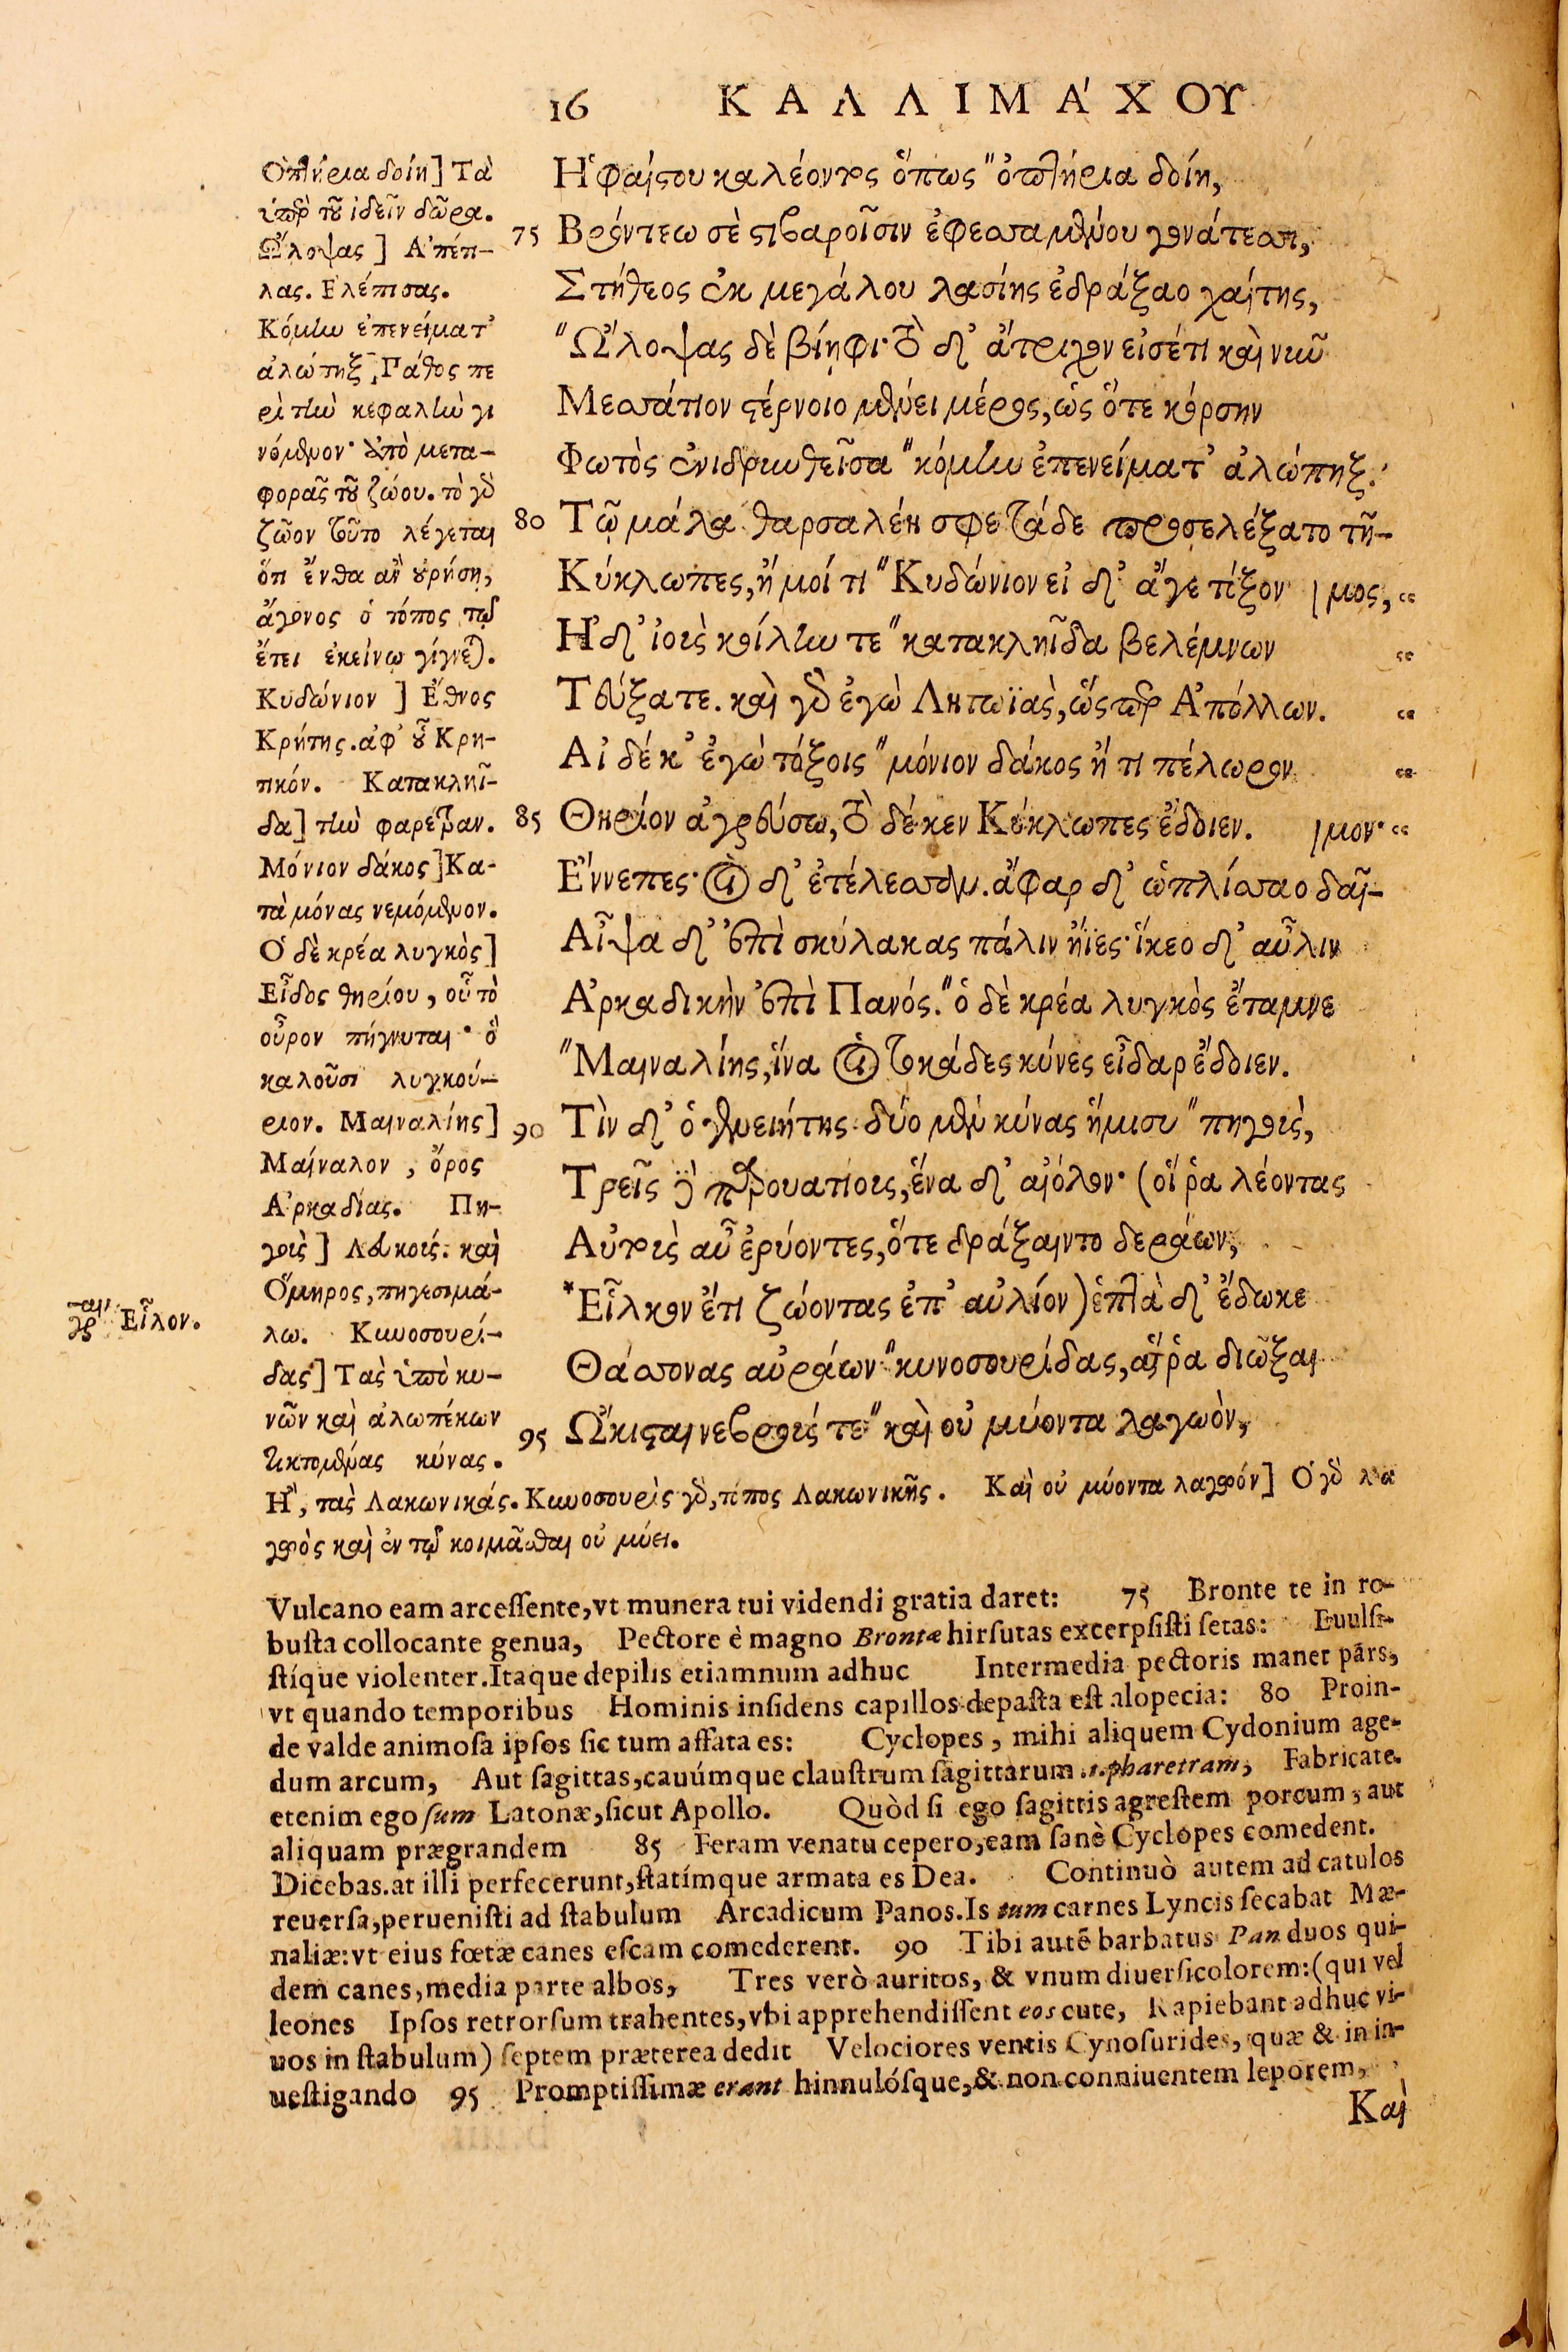 16 ΚΑΛΛΙΜΆΧΟΥ
Ὀπτήρια δοίη] Τὰ
ὑπὲρ τοῦ ἰδεῖν δῶρα.
Ὤλοψας] Ἀπέπ-
λας. Ελέπισας.
Κόμην ἐπενείματ'
ἀλώπηξ] Πάθος πε
ρὶ τὴν κεφαλὴν γι
νόμενον· ἀπὸ μετα-
φορᾶς τοῦ ζώου. τὸ γὰρ
ζῶον τοῦτο λέγεται
ὅτι ἔνθα ἂν οὐρήση,
ἄγονος ὁ τόπος τῷ
ἔτει ἐκείνῳ γίγνεται.
Κυδώνιον] Ἔθνος
Κρήτης. ἀφ' οὗ Κρη-
τικόν. Κατακληῖ-
δα] τὴν φαρέτραν.
Μόνιον δάκος] Κα-
τὰ μόνας νεμόμενον.
Ὁ δὲ κρέα λυγκὸς]
Εἶδος θηρίου, οὗ τὸ
οὖρον πήγνυται· ὃ
καλοῦσι λυγκού-
ριον. Μαιναλίης]
Μαίναλον, ὄρος
Ἀρκαδίας. Πη-
γοὺς] Λευκούς. καὶ
Ὅμηρος, πηγεσιμά-
λω. Κυνοσουρί-
δας] Τὰς ὑπὸ κυ-
νῶν καὶ ἀλωπέκων
τικτομένας κύνας.
Ἢ, τὰς Λακωνικάς. Κυνοσουρὶς γὰρ, τόπος Λακωνικῆς. Καὶ οὐ μύοντα λαγωόν] Ὁ γὰρ λα
γωὸς καὶ ἐν τῷ κοιμᾶσθαι οὐ μύει.
γρ Εἷλον.
Ἡφαίστου καλέοντος ὅπως "ὀπτήρια δοίη,
75 Βρόντεω σὲ στιβαροῖσιν ἐφεσσαμένου γονάτεσσι,
Στήθεος ἐκ μεγάλου λασίης ἐδράξαο χαίτης,
"Ὤλοψας δὲ βίηφι· τὸ δ' ἄτριχον εἰσέτι καὶ νῦν
Μεσσάτιον στέρνοιο μένει μέρος, ὡς ὅτε κόρσην
Φωτὸς ἐνιδρυνθεῖσα "κόμην ἐπενείματ' ἀλώπηξ.
80 Τῷ μάλα θαρσαλέη σφε τάδε προσελέξατο τῆ-
Κύκλωπες, ἤ μοί τι "Κυδώνιον εἰ δ' ἄγε τόξον |μος, "
Ἠδ' ἰοὺς κοίλην τε "κατακληῖδα βελέμνων "
Τεύξατε. καὶ γὰρ ἐγὼ Λητωϊὰς, ὥσπερ Ἀπόλλων. "
Αἰ δέ κ' ἐγὼ τόξοις "μόνιον δάκος ἤ τι πέλωρον "
85 Θηρίον ἀγρεύσω, τὸ δέ κεν Κύκλωπες ἔδοιεν. |μον· "
Ἔννεπες· οἱ δ' ἐτέλεσσαν. ἄφαρ δ' ὡπλίσσαο δαῖ-
Αἶψα δ' ἐπὶ σκύλακας πάλιν ἤϊες· ἵκεο δ' αὖλιν
Ἀρκαδικὴν ἐπὶ Πανός. "ὁ δὲ κρέα λυγκὸς ἔταμνε
"Μαιναλίης, ἵνα οἱ τοκάδες κύνες εἶδαρ ἔδοιεν.
90 Τὶν δ' ὁ γενειήτης δύο μὲν κύνας ἥμισυ "πηγοὺς,
Τρεῖς δὲ παρουατίους, ἕνα δ' αἰόλον· (οἵ ῥα λέοντας
Αὐτοὺς αὖ ἐρύοντες, ὅτε δράξαιντο δεράων,
*Εἷλκον ἔτι ζώοντας ἐπ' αὐλίον) ἑπτὰ δ' ἔδωκε
Θάσσονας αὐράων "κυνοσουρίδας, αἵ ῥα διῶξαι
95 Ὤκισται νεβρούς τε "καὶ οὐ μύοντα λαγωὸν,
Vulcano eam arcessente, vt munera tui videndi gratia daret: 75 Bronte te in ro-
busta collocante genua, Pectore è magno Brontæ hirsutas excerpsisti setas: Euulsi-
stíque violenter. Itaque depilis etiamnum adhuc Intermedia pectoris manet pars,
vt quando temporibus Hominis insidens capillos depasta est alopecia: 80 Proin-
de valde animosa ipsos sic tum affata es: Cyclopes, mihi aliquem Cydonium age-
dum arcum, Aut sagittas, cauúmque claustrum sagittarum .i. pharetram, Fabricate.
etenim ego sum Latonæ, sicut Apollo. Quòd si ego sagittis agrestem porcum, aut
aliquam prægrandem 85 Feram venatu cepero, eam sanè Cyclopes comedent.
Dicebas. at illi perfecerunt, statímque armata es Dea. Continuò autem ad catulos
reuersa, peruenisti ad stabulum Arcadicum Panos. Is tum carnes Lyncis secabat Mæ-
naliæ: vt eius fœtæ canes escam comederent. 90 Tibi autē barbatus Pan duos qui-
dem canes, media parte albos, Tres verò auritos, & vnum diuersicolorem: (qui vel
leones Ipsos retrorsum trahentes, vbi apprehendissent eos cute, Rapiebant adhuc vi-
uos in stabulum) septem præterea dedit Velociores ventis Cynosurides, quæ & in in-
uestigando 95 Promptissimæ erant hinnulósque, & non conniuentem leporem,
Καὶ